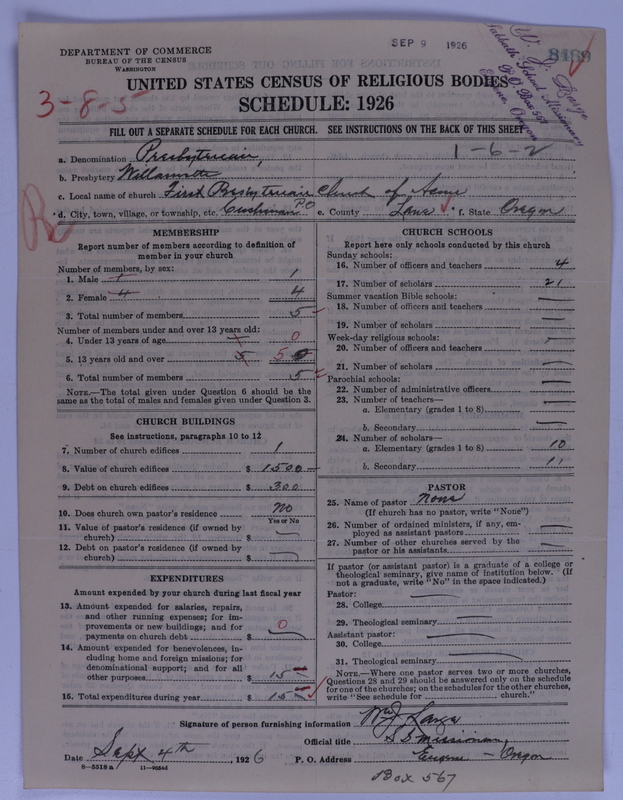 DEPARTMENT OF COMMERCE
BUREAU OF THE CENSUS
WASHINGTON
SEP 9 1926
8169
W. J. Large
Sabbath School Missionary
P.O. Box 567
Eugene, Oregon
3-8-5
UNITED STATES CENSUS OF RELIGIOUS BODIES
SCHEDULE: 1926
FILL OUT A SEPARATE SCHEDULE FOR EACH CHURCH. SEE INSTRUCTIONS ON THE BACK OF THIS SHEET
1-6-2
a. Denomination Presbyterian,
b. Presbytery Willamette
c. Local name of church First Presbyterian Church of Acme
d. City, town, village, or township, etc. Cushman P.O e. County Lane f. State Oregon
R
MEMBERSHIP
Report number of members according to definition of
member in your church
Number of members, by sex:
1. Male 1 1
2. Female 4 4
3. Total number of members 5
Number of members under and over 13 years old:
4. Under 13 years of age 0
5. 13 years old and over 5 5 0
6. Total number of members 5
NOTE.—The total given under Question 6 should be the
same as the total of males and females given under Question 3.
CHURCH BUILDINGS
See instructions, paragraphs 10 to 12
7. Number of church edifices 1
8. Value of church edifices $ 1500—
9. Debt on church edifices $ 300
10. Does church own pastor's residence? No
Yes or No
11. Value of pastor's residence (if owned by
church) $ —
12. Debt on pastor's residence (if owned by
church) $ —
EXPENDITURES
Amount expended by your church during last fiscal year
13. Amount expended for salaries, repairs,
and other running expenses; for im-
provements or new buildings; and for
payments on church debt $ 0
14. Amount expended for benevolences, in-
cluding home and foreign missions; for
denominational support; and for all
other purposes $ 15—
15. Total expenditures during year $ 15—
CHURCH SCHOOLS
Report here only schools conducted by this church
Sunday schools:
16. Number of officers and teachers 4
17. Number of scholars 21
Summer vacation Bible schools:
18. Number of officers and teachers —
19. Number of scholars —
Week-day religious schools:
20. Number of officers and teachers —
21. Number of scholars —
Parochial schools:
22. Number of administrative officers —
23. Number of teachers—
a. Elementary (grades 1 to 8) —
b. Secondary —
24. Number of scholars—
a. Elementary (grades 1 to 8) 10
b. Secondary 11
PASTOR
25. Name of pastor None
(If church has no pastor, write "None")
26. Number of ordained ministers, if any, em-
ployed as assistant pastors —
27. Number of other churches served by the
pastor or his assistants —
If pastor (or assistant pastor) is a graduate of a college or
theological seminary, give name of institution below. (If
not a graduate, write "No" in the space indicated.)
Pastor:
28. College —
29. Theological seminary —
Assistant pastor:
30. College —
31. Theological seminary —
NOTE.—Where one pastor serves two or more churches,
Questions 28 and 29 should be answered only on the schedule
for one of the churches; on the schedules for the other churches,
write "See schedule for church."
Signature of person furnishing information Wm J Large
Official title S S Missionary
Date Sept 4th, 1926 P. O. Address Eugene — Oregon
8—5518a
Box 567